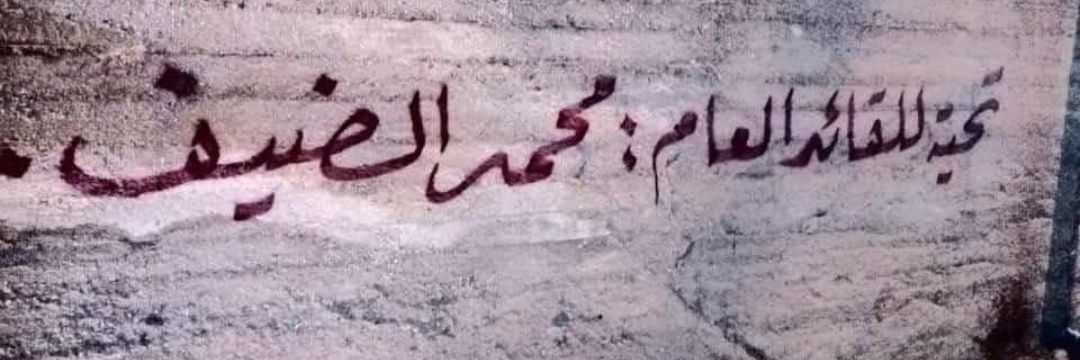 تحية للقائد العام : محمد الضيف .